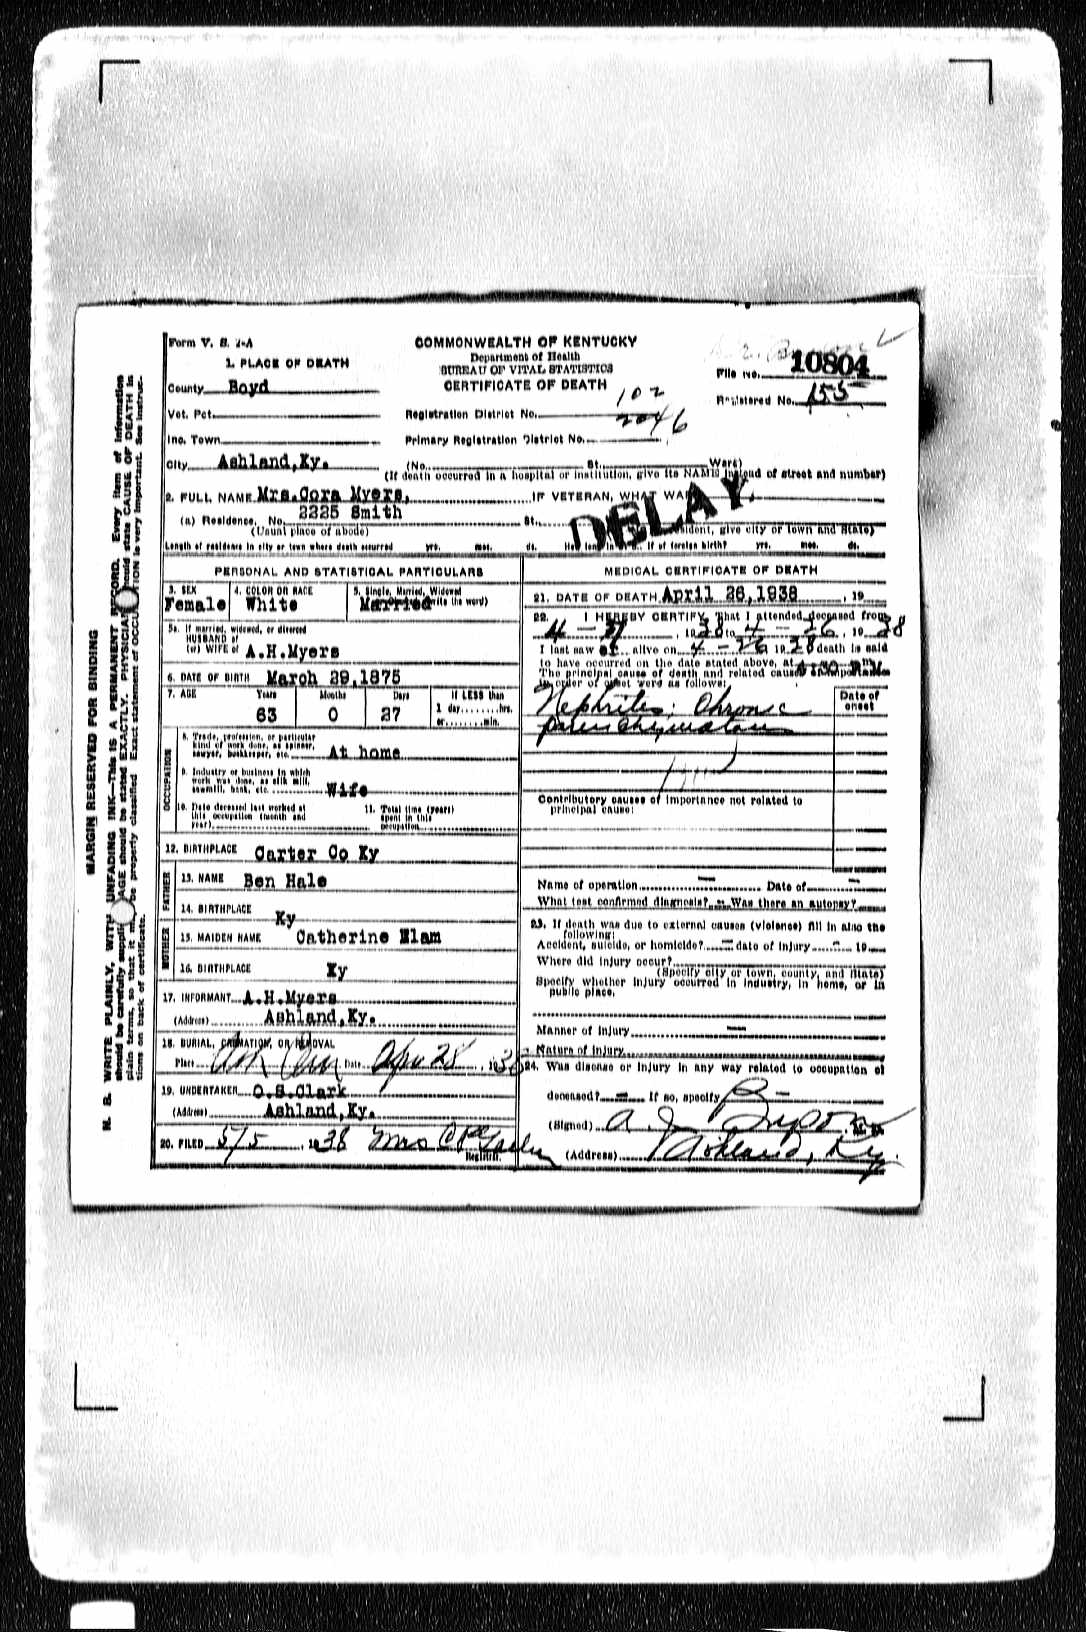 Form V. S. 1-A
COMMONWEALTH OF KENTUCKY
Department of Health
BUREAU OF VITAL STATISTICS
CERTIFICATE OF DEATH
File No. 10804
Registered No. 155
1. PLACE OF DEATH
County Boyd
Vot. Pct.
Inc. Town
City Ashland,Ky.
102
Registration District No.
2046
Primary Registration District No.
(No. St. Ward)
(If death occurred in a hospital or institution, give its NAME instead of street and number)
2. FULL NAME Mrs.Cora Myers, IF VETERAN, WHAT WAR
DELAY
(a) Residence, No. 2225 Smith St.
(Usual place of abode) give city or town and State)
Length of residence in city or town where death occurred yrs. mos. ds. How long in U. S., if of foreign birth? yrs. mos. ds.
PERSONAL AND STATISTICAL PARTICULARS
3. SEX Female
4. COLOR OR RACE White
5. Single, Married, Widowed (write the word) Married
5a. If married, widowed, or divorced
HUSBAND of
(or) WIFE of A.H.Myers
6. DATE OF BIRTH March 29,1875
7. AGE Years Months Days If LESS than
63 0 27 1 day hrs.
or min.
OCCUPATION
8. Trade, profession, or particular
kind of work done, as spinner,
sawyer, bookkeeper, etc. At home
9. Industry or business in which
work was done, as silk mill,
sawmill, bank, etc. Wife
10. Date deceased last worked at
this occupation (month and
year)
11. Total time (years)
spent in this
occupation
12. BIRTHPLACE Carter Co Ky
FATHER
13. NAME Ben Hale
14. BIRTHPLACE Ky
MOTHER
15. MAIDEN NAME Catherine Elam
16. BIRTHPLACE Ky
17. INFORMANT A.H.Myers
(Address) Ashland,Ky.
18. BURIAL, CREMATION, OR REMOVAL
Place Ash Cem Date Apr 28, 1938
19. UNDERTAKER O.S.Clark
(Address) Ashland,Ky.
20. FILED 5/5, 1938 Mrs
Registrar.
MEDICAL CERTIFICATE OF DEATH
21. DATE OF DEATH April 26,1938, 19
22. I HEREBY CERTIFY, That I attended deceased from
1938 to 4-26, 1938
I last saw alive on 4-26 1938 death is said
to have occurred on the date stated above, at 4:30 P.M.
The principal cause of death and related causes of importance
in order of onset were as follows:
Date of onset
Nephritis: Chronic
parenchymatous
Contributory causes of importance not related to
principal cause:
Name of operation — Date of —
What test confirmed diagnosis? — Was there an autopsy?
23. If death was due to external causes (violence) fill in also the
following:
Accident, suicide, or homicide? — date of injury - 19
Where did injury occur?
(Specify city or town, county, and State)
Specify whether injury occurred in industry, in home, or in
public place.
Manner of injury —
Nature of injury
24. Was disease or injury in any way related to occupation of
deceased? — If so, specify
(Signed) A. J. Bryson
(Address) Ashland, Ky.
MARGIN RESERVED FOR BINDING
N. B. WRITE PLAINLY, WITH UNFADING INK—This IS A PERMANENT RECORD. Every item of information
should be carefully supplied. AGE should be stated EXACTLY. PHYSICIANS should state CAUSE OF DEATH in
plain terms, so that it may be properly classified. Exact statement of OCCUPATION is very important. See instruc-
tions on back of certificate.